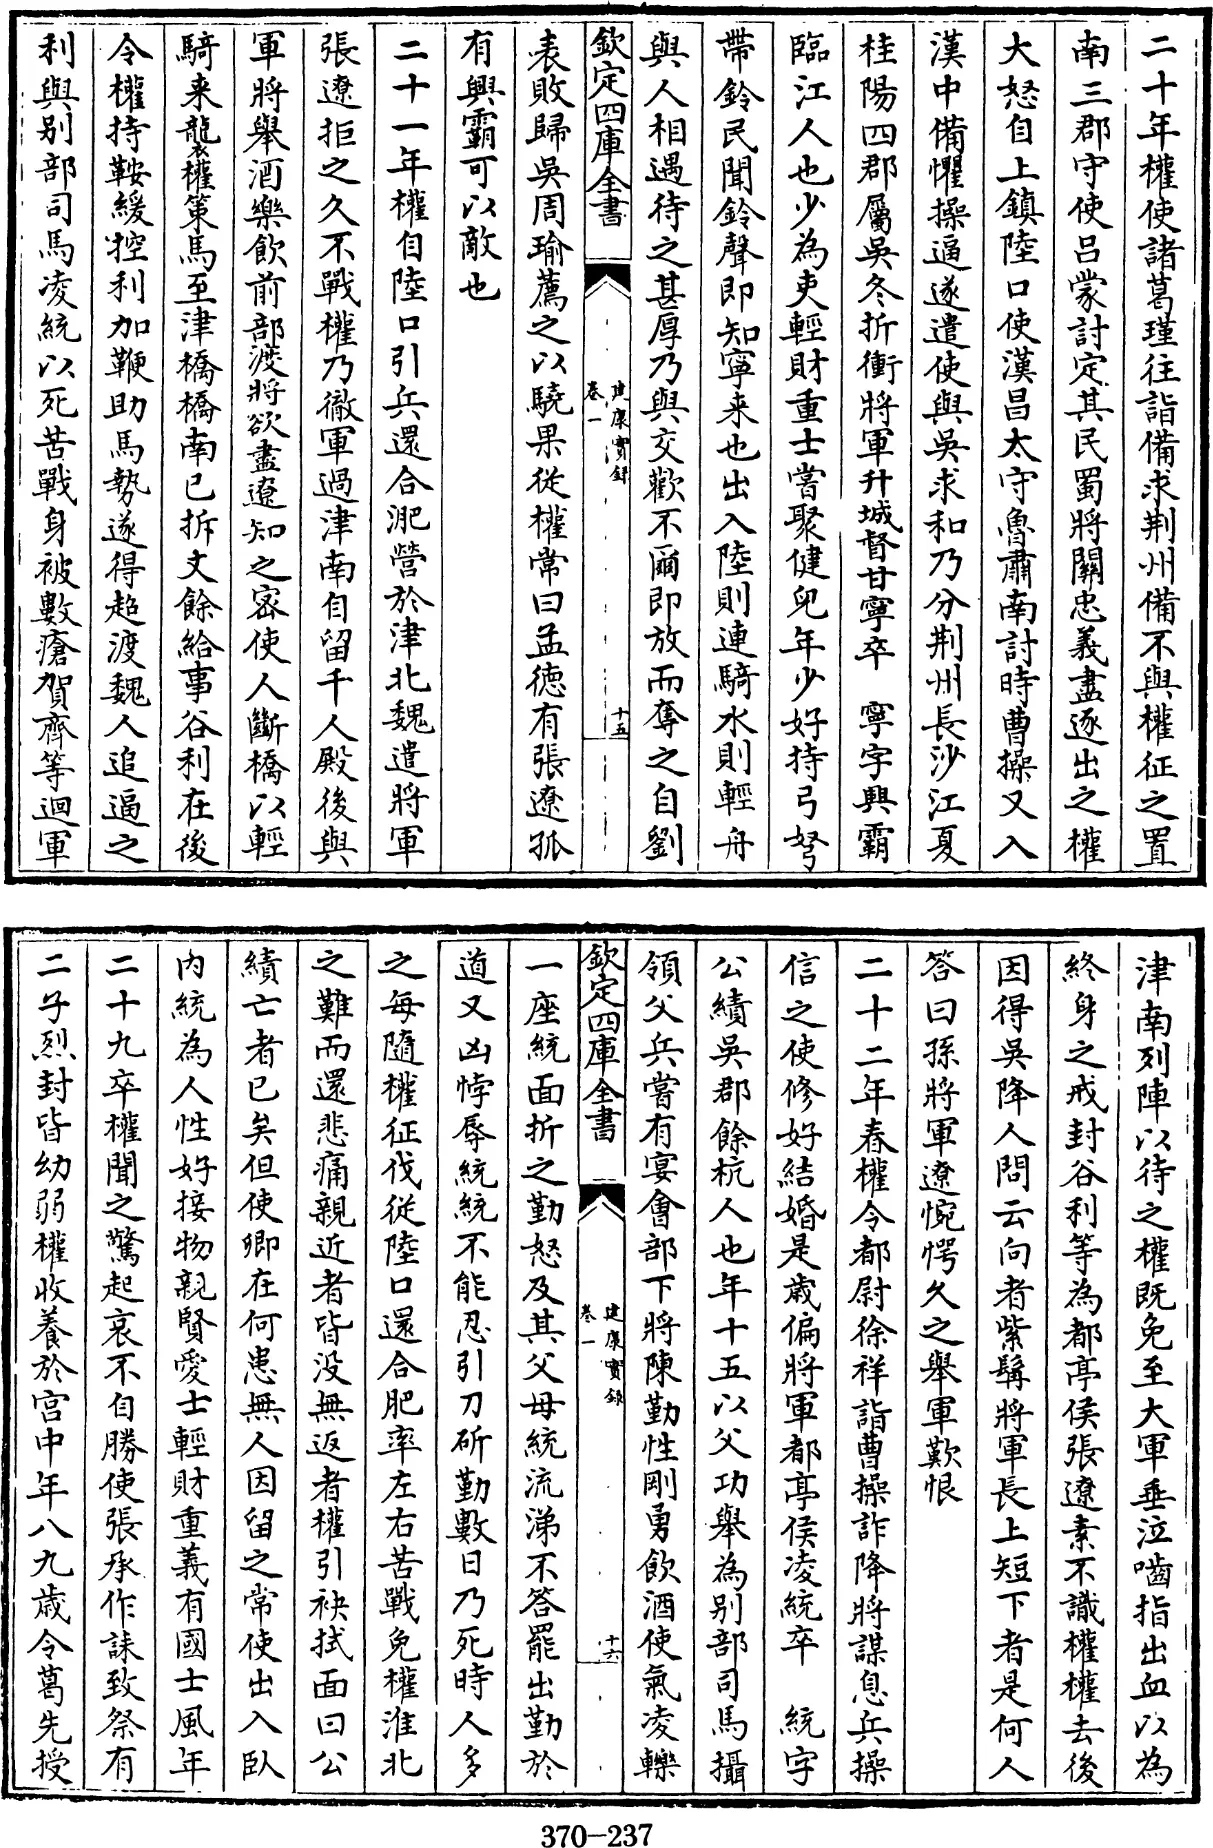 二十年權使諸葛瑾往詣備求荆州備不與權征之置
南三郡守使呂蒙討定其民蜀將關忠義盡逐出之權
大怒自上鎮陸口使漢昌太守魯肅南討時曹操又入
漢中備懼操逼遂遣使與吳求和乃分荆州長沙江夏
桂陽四郡屬吳冬折衝將軍升城督甘寧卒　寧字興霸
臨江人也少為吏輕財重士嘗聚健兒年少好持弓弩
帶鈴民聞鈴聲即知寧来也出入陸則連騎水則輕舟
與人相遇待之甚厚乃與交歡不爾即放而奪之自劉
欽定四庫全書　建康實錄 卷一　十五
表敗歸吳周瑜薦之以驍果從權常曰孟德有張遼孤
有興霸可以敵也
二十一年權自陸口引兵還合淝營於津北魏遣將軍
張遼拒之久不戰權乃徹軍過津南自留千人殿後與
軍將舉酒樂飲前部渡將欲盡遼知之密使人斷橋以輕
騎来襲權策馬至津橋橋南已拆丈餘給事谷利在後
令權持鞍緩控利加鞭助馬勢遂得超渡魏人追逼之
利與别部司馬凌統以死苦戰身被數瘡賀齊等迴軍
津南列陣以待之權既免至大軍垂泣嚙指出血以為
終身之戒封谷利等為都亭侯張遼素不識權權去後
因得吳降人問云向者紫髯將軍長上短下者是何人
答曰孫將軍遼惋愕久之舉軍歎恨
二十二年春權令都尉徐祥詣曹操詐降將謀息兵操
信之使修好結婚是歲偏將軍都亭侯凌統卒　統字
公績吳郡餘杭人也年十五以父功舉為别部司馬攝
領父兵嘗有宴會部下將陳勤性剛勇飲酒使氣凌轢
欽定四庫全書　建康實錄 卷一　十六
一座統面折之勤怒及其父母統流涕不答罷出勤於
道又凶悖辱統統不能忍引刀斫勤數日乃死時人多
之每隨權征伐從陸口還合肥率左右苦戰免權淮北
之難而還悲痛親近者皆没無返者權引袂拭面曰公
績亡者已矣但使卿在何患無人因留之常使出入臥
内統為人性好接物親賢愛士輕財重義有國士風年
二十九卒權聞之驚起哀不自勝使張承作誄致祭有
二子烈封皆幼弱權收養於宮中年八九歲令葛先授
370-237